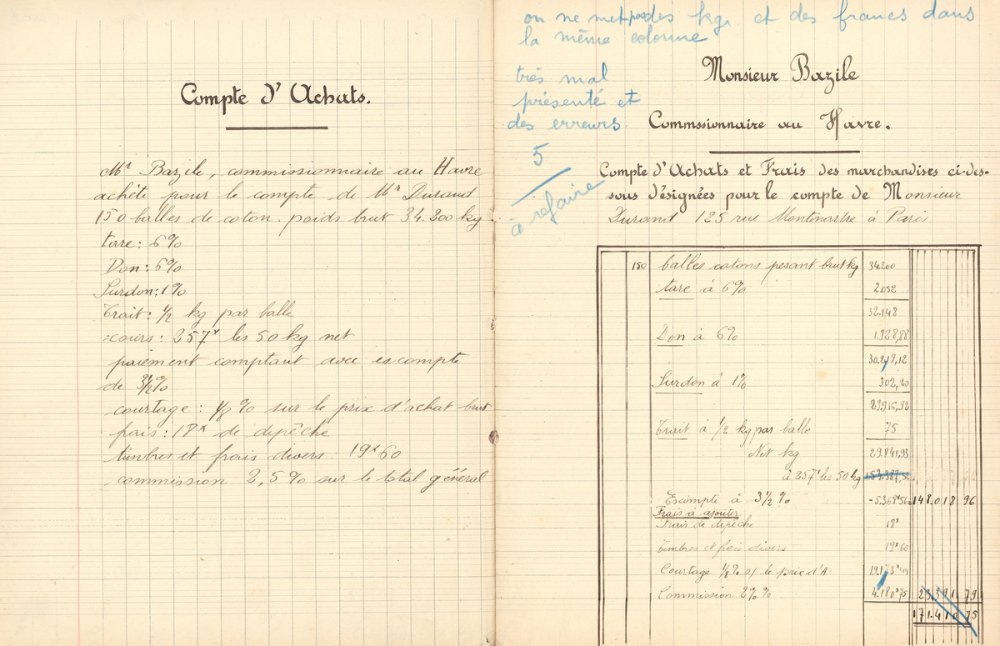 Compte d'Achats.
Mr Bazile, commissionnaire au Havre
achète pour le compte de Mr Durand
150 balles de coton. poids brut 34.200 kg.
tare: 6%
Don: 6%
Surdon: 1%
Trait: ½ kg par balle
cours: 257f les 50 kg net
paiement comptant avec escompte
de 3½%
courtage: ⅛% sur le prix d'achat brut
frais: 18f de depêche
timbres et frais divers 19f60
commission 2,5% sur le total général
on ne met pas des kgs et des francs dans
la même colonne
très mal
présenté et
des erreurs.
5
à refaire
Monsieur Bazile
Commssionnaire au Havre.
Compte d'Achats et Frais des marchandises ci-des-
sous désignées pour le compte de Monsieur
Durand 125 rue Montmartre à Paris
150 balles cotons pesant brut kg 34200
tare à 6% 2.052
32.148
Don à 6% 1.928,88
30.219,12
Surdon à 1% 302,20
29.916,92
Trait à ½ kg par balle 75
Net kg 29.841,93
à 257f les 50 kg
Escompte à 3½% 148.018 96
Frais à ajouter
Frais de depêche 18f
Timbres et frais divers 19f60
Courtage ⅛% s/ le prix d'A.
Commission 2½% 4.180f75
171.410 75